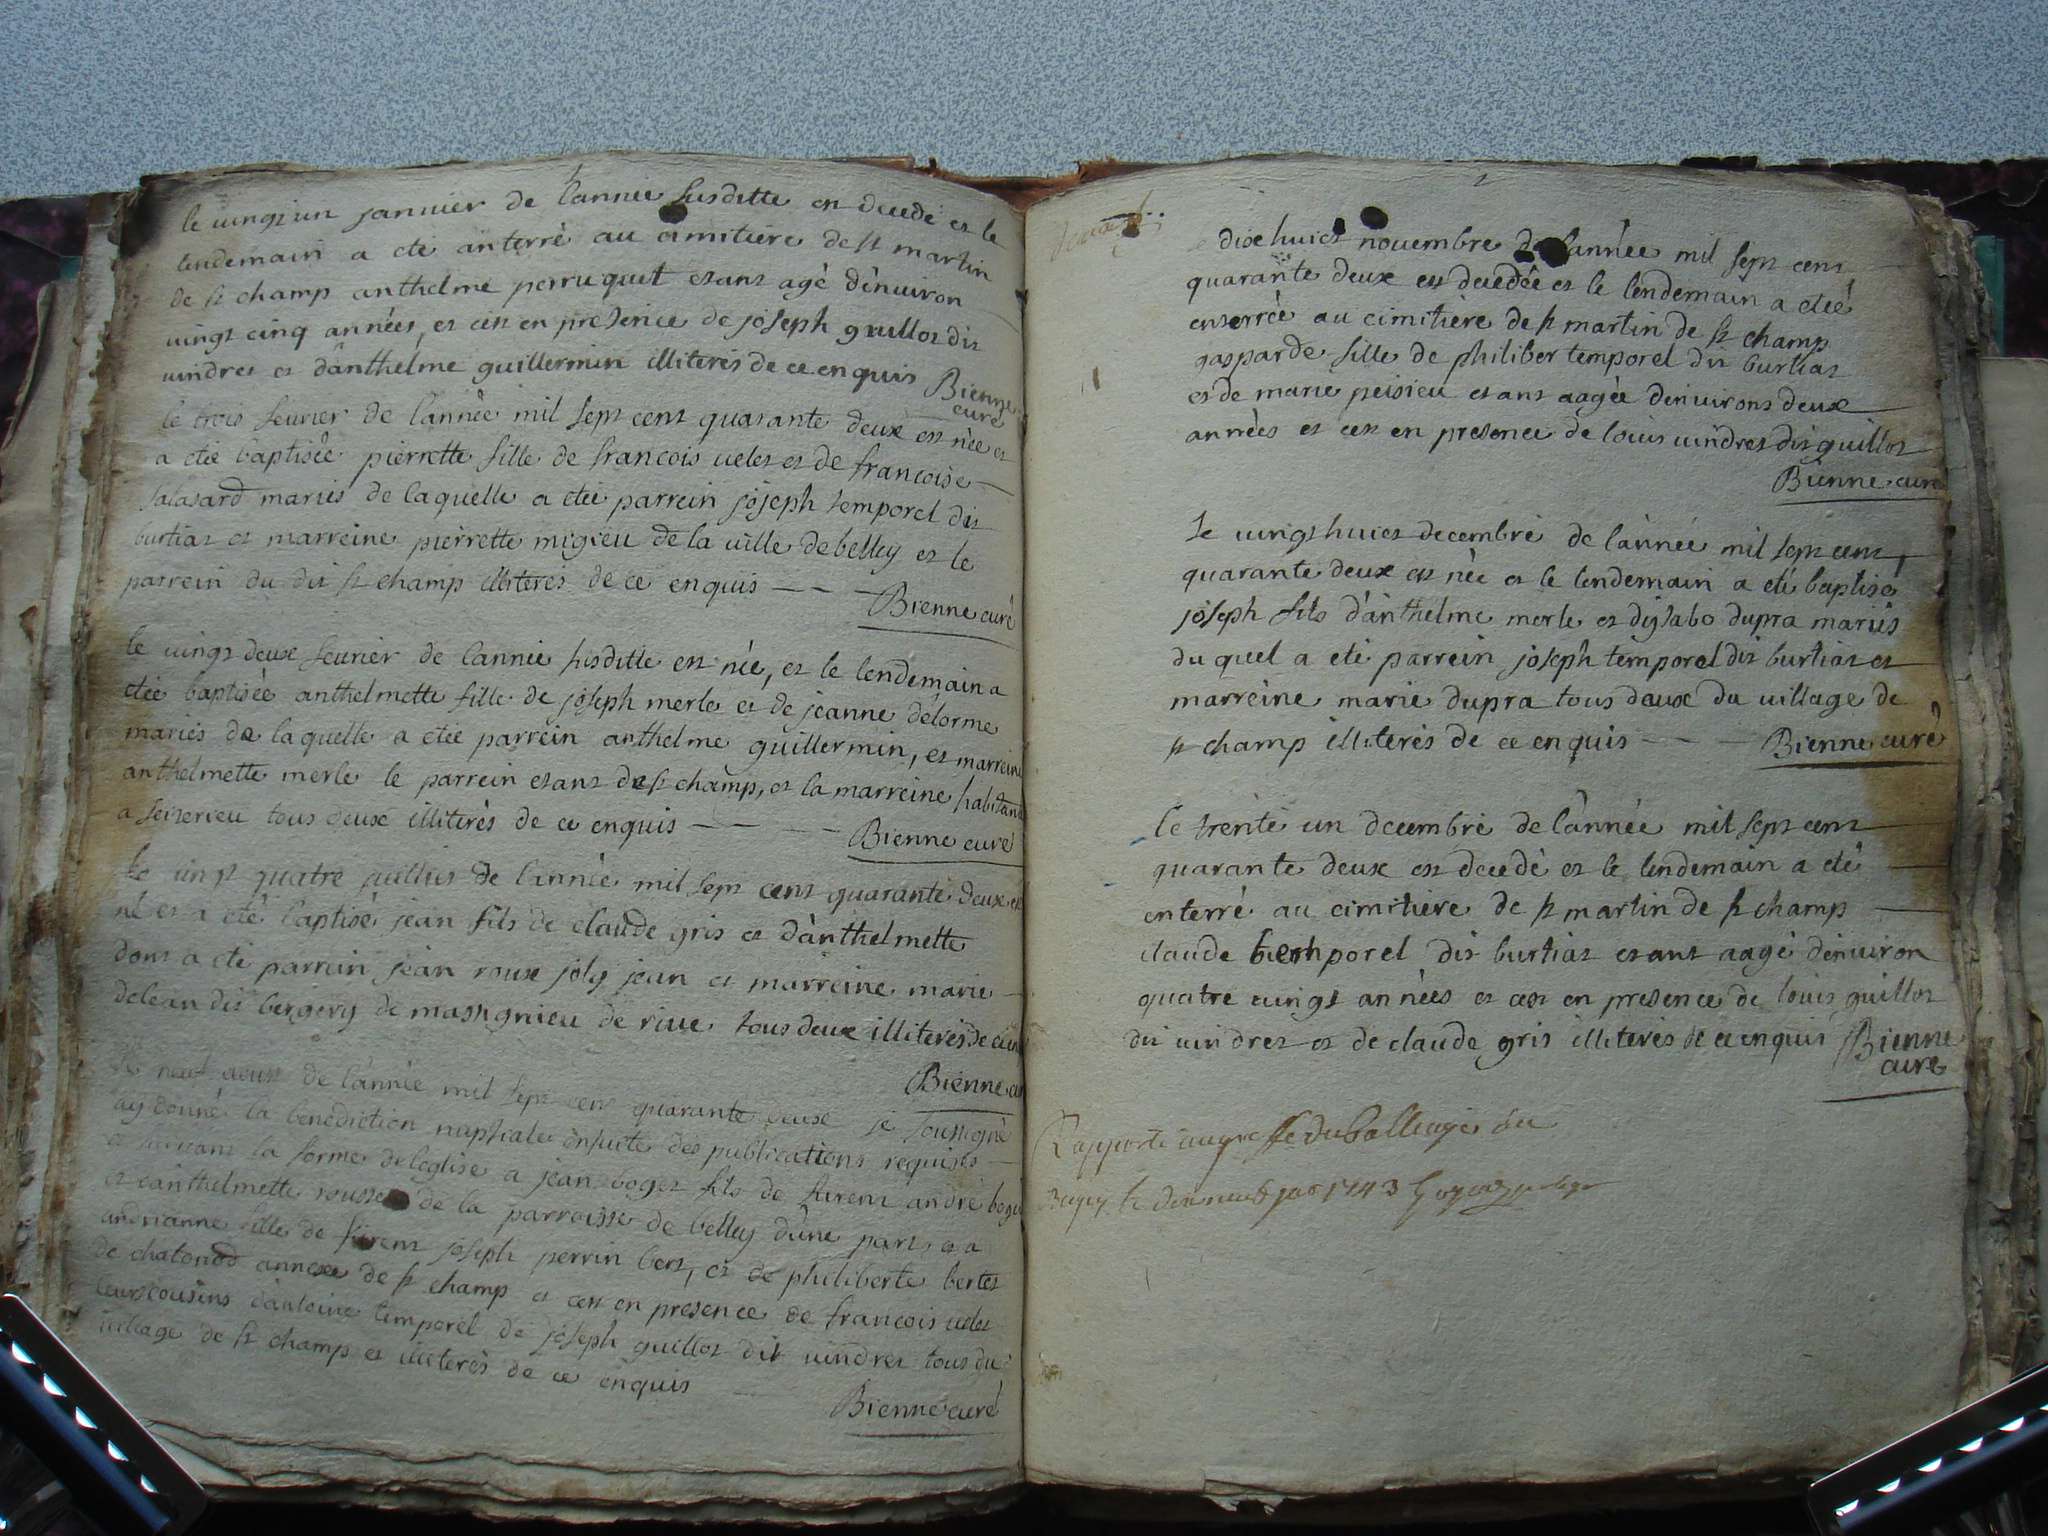 le vingt un janvier de l'année susditte est decedé et le
lendemain a eté anterré au cimitiére de st martin
de st champ anthelme perruquet etant agé dénviron
vingt cinq années, et cest en présence de joseph guillot dit
vindret et dánthelme guillermin illiterés de ce enquis
Bienne
curé
le trois fevrier de l'année mil sept cent quarante deux est née et
a etée baptisée pierrette fille de francois velet et de francoise
salasard mariés de laquelle a etée parrein joseph temporel dit
burtiat et marreine pierrette migieu de la ville de belley et le
parrein du dit st champ illiterés de ce enquis
Bienne curé
le vingt deux fevrier de l'année susditte est née, et le lendemain a
etée baptisée anthelmette fille de joseph merle et de jeanne délorme
mariés de laquelle a etée parrein anthelme guillermin, et marreine
anthelmette merle le parrein etant de st champ, et la marreine habitant
a seizerieu tous deux illiterés de ce enquis
Bienne curé
Le vingt quatre juillet de l'année mil sept cent quarante deux est
né et a eté baptisé jean fils de claude gris et dánthelmette
dont a eté parrein jean roux joly jean et marreine marie
delean dit bergery de massignieu de rive tous deux illiterés de ce
Bienne
Le neuf aoust de l'année mil sept cent quarante deux je soussigné
ay donné la benediction nuptiale ensuite des publications requises
et suivant la forme de leglise a jean boget fils de furent andré boget
et danthelmette rousset de la parroisse de belley dúne part, et a
andrianne fille de furent joseph perrin bert, et de philiberte bertet
de chatonod annexe de st champ et cest en presence de francois velet
leurs cousins dántoine temporel de joseph guillot dit vindret tous du
village de st champ et illiterés de ce enquis
Bienne curé
2
dixe huict novembre de l'année mil sept cent
quarante deux est decedée et le lendemain a eteé
enterrée au cimitiére de st martin de st champ
gasparde fille de philibert temporel dit burtiat
et de marie peisieu etant aagée dénvirons deux
années et cest en presence de louis vindret dit guillot
Bienne curé
Le vingt huict decembre de l'année mil sept cent
quarante deux est née et le lendemain a eté baptisé
joseph fils dánthelme merle et dysabo dupra mariés
du quel a eté parrein joseph temporel dit burtiat et
marreine marie dupra tous deux du village de
st champ illiterés de ce enquis
Bienne curé
le trente un decembre de l'année mil sept cent
quarante deux est decedé et le lendemain a eté
enterré au cimitiére de st martin de st champ
claude temporel dit burtiat etant aagé dénviron
quatre vingt années et cest en presence de louis guillot
dit vindret et de claude gris illiterés de ce enquis
Bienne
curé
Rapporté au greffe du balliage du
Bugey le dix neuf 1743